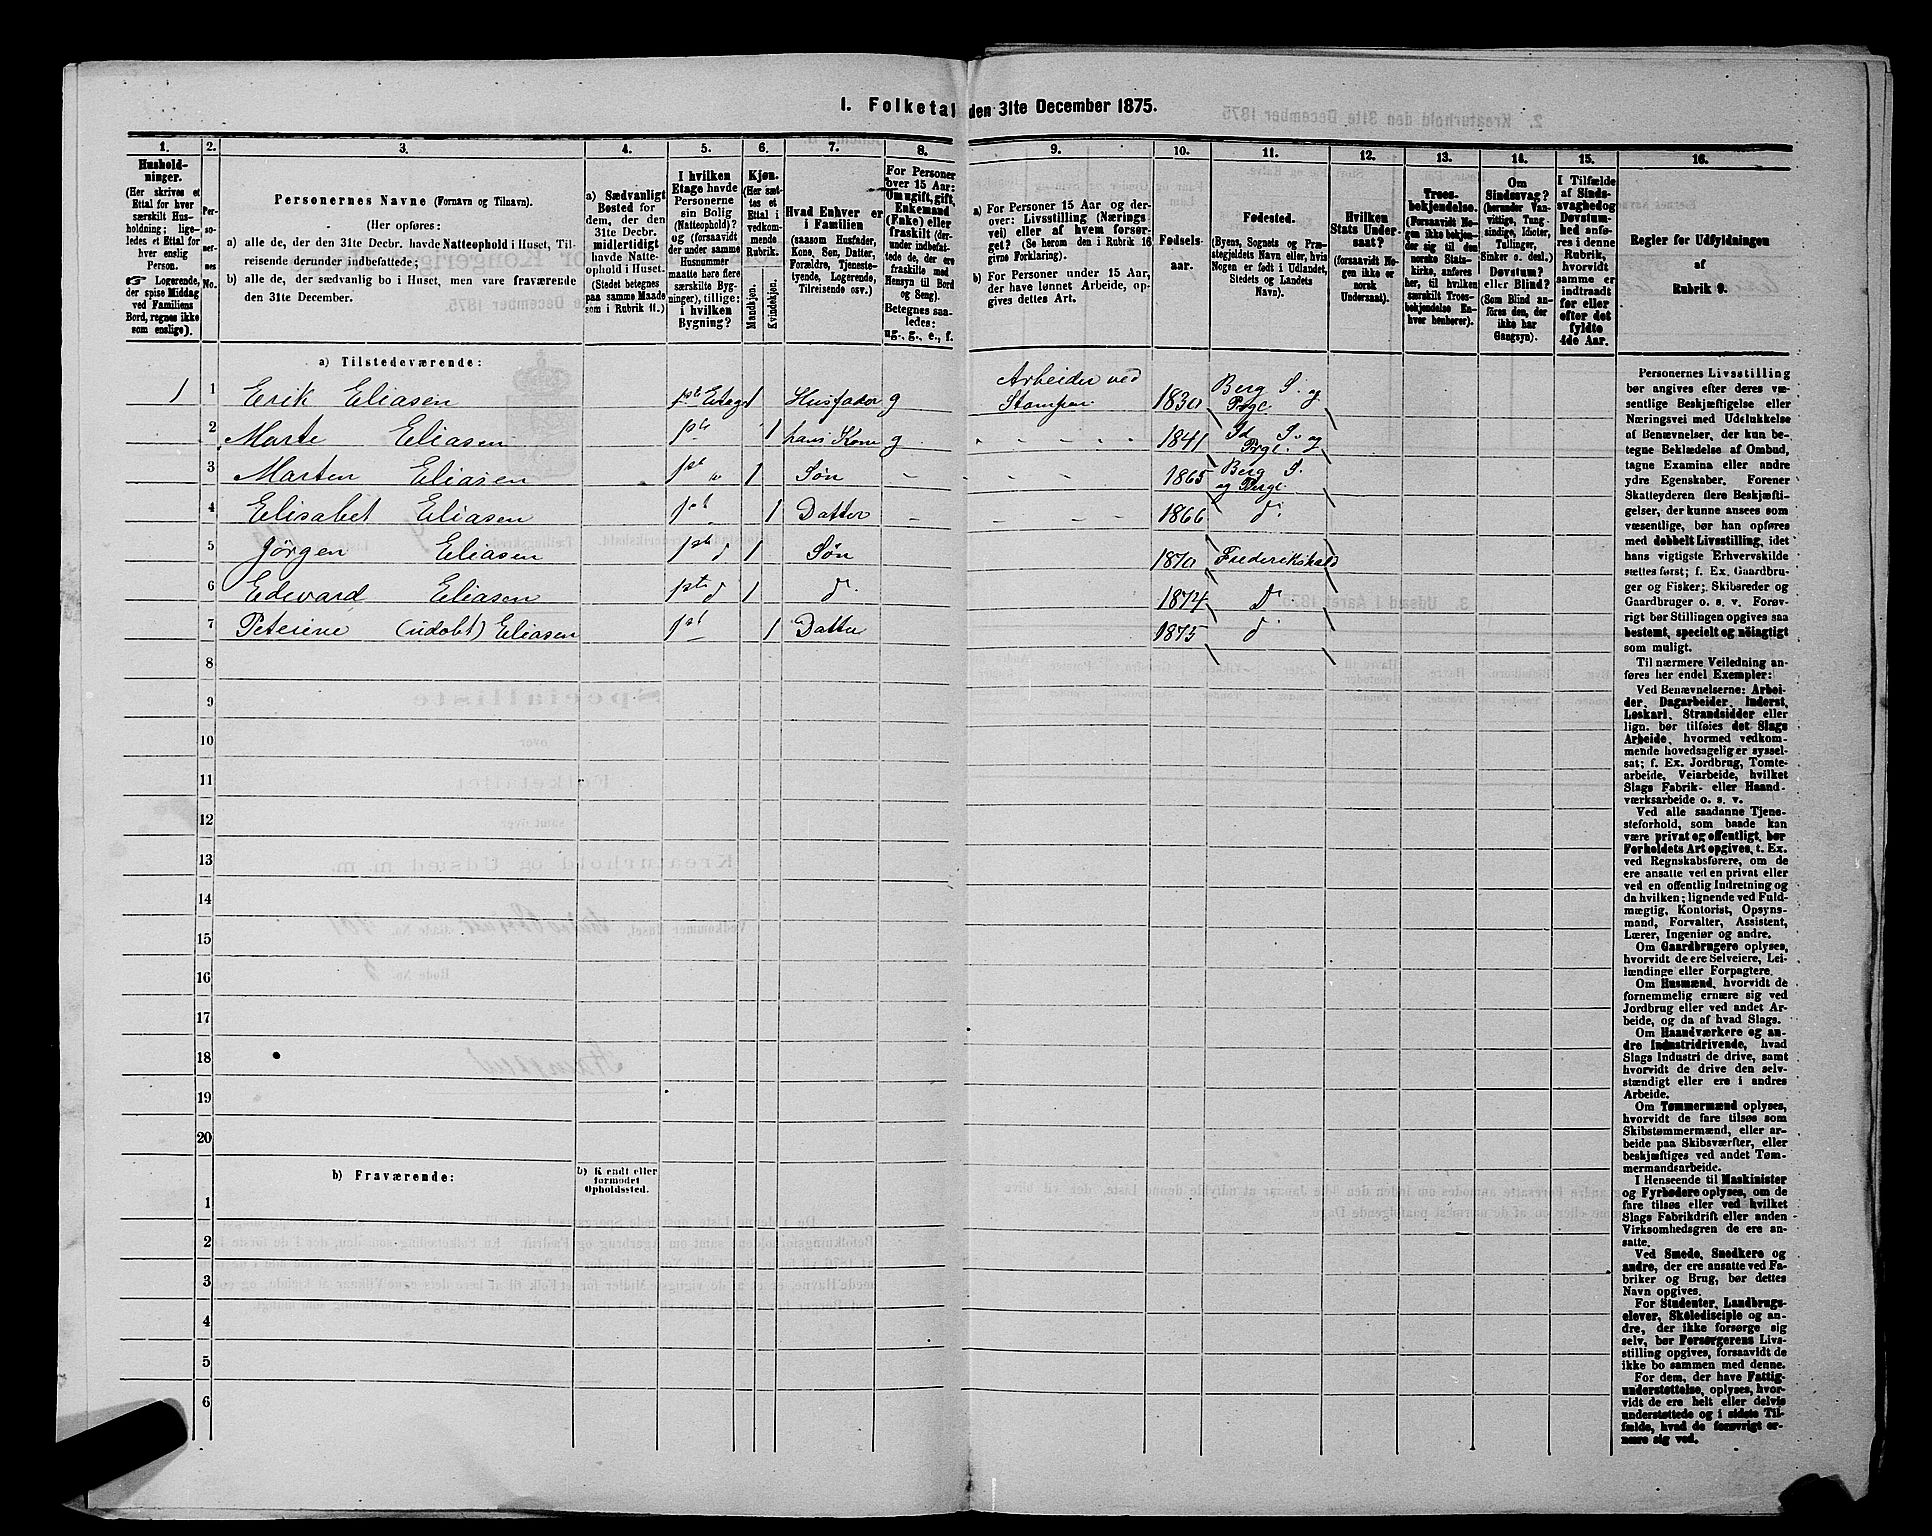 1. Folketal den 31te December 1875.
1. 2. 3. 4. 5. 6. 7. 8. 9. 10. 11. 12. 13. 14. 15. 16.
Hushold-
ninger.
(Her skrives et
Ettal for hver
særskilt Hus-
holdning; lige-
ledes et Ettal for
hver enslig
Person.
☞ Logerende,
der spise Middag
ved Familiens
Bord, regnes ikke
som enslige).
Per-
so-
ner-
nes
No.
Personernes Navne (Fornavn og Tilnavn).
(Her opføres:
a) alle de, der den 31te Decbr. havde Natteophold i Huset, Til-
reisende derunder indbefattede;
b) alle de, der sædvanlig bo i Huset, men vare fraværende
den 31te December.
a) Sædvanligt
Bosted for
dem, der den
31te Decbr.
midlertidigt
havde Natte-
ophold i Huset.
(Stedet betegnes
paa samme Maade
som i Rubrik 11.)
I hvilken
Etage havde
Personerne
sin Bolig
(Natteophold)?
og (forsaavidt
der under samme
Husnummer
maatte høre flere
særskilte Byg-
ninger), tillige:
i hvilken
Bygning?
Kjøn.
(Her sæt-
tes et
Ettal i
vedkom-
mende
Rubrik.
Mandkjøn.
Kvindekjøn.
Hvad Enhver er
i Familien
(saasom Husfader,
Kone, Søn, Datter,
Forældre, Tjeneste-
tyende, Logerende,
Tilreisende osv.)
For Personer
over 15 Aar:
Om ugift, gift,
Enkemand
(Enke) eller
fraskilt (der-
under indbefat-
tede de, der ere
fraskilte med
Hensyn til Bord
og Seng).
Betegnes saa-
ledes:
ug., g., e., f.
a) For Personer 15 Aar og der-
over: Livsstilling (Nærings
vei) eller af hvem forsør-
get? (Se herom den i Rubrik 16
givne Forklaring).
b) For Personer under 15 Aar,
der have lønnet Arbeide, op-
gives dettes Art.
Fødsels-
aar.
Fødested.
(Byens, Sognets og Præ-
stegjeldets Navn eller, hvis
Nogen er født i Udlandet,
Stedets og Landets
Navn).
Hvilken
Stats Under-
saat?
(forsaavidt No-
gen ikke er
norsk
Undersaat).
Troes-
bekjendelse.
(Forsaavidt No-
gen ikke bekjen-
der sig til den
norske Stats-
kirke, anføres
her, til hvilken
særskilt Troes-
bekjendelse En-
hver henhører).
Om
Sindssvag?
(herunder Van-
vittige, Tung-
sindige, Idioter,
Tullinger,
Sinker o. desl.)
Døvstum?
eller Blind?
(Som Blind an-
føres den, der
ikke har
Gangsyn).
I Tilfælde
af Sinds-
svaghed og
Døvstum-
hed anfø-
res i denne
Rubrik,
hvorvidt
samme er
indtraadt
før eller
efter det
fyldte
4de Aar.
Regler for Udfyldningen
af
Rubrik 9.
a) Tilstedeværende:
1 1 Erik Eliasen 1ste Etage 1 Husfader g Arbeider ved Stampen 1830 Berg S. og Prgl.
2 Marte Eliasen 1ste 1 hans Kone g 1841 Id S. og Prgl.
3 Marten Eliasen 1st " 1 Søn 1865 Berg S. og Prgl.
4 Elisabet Eliasen 1st 1 Datter 1866 d°
5 Jörgen Eliasen 1st d 1 Søn 1870 Frederikshald
6 Edevard Eliasen 1ste d 1 d° 1874 D°
7 Peterine (udøbt) Eliasen 1st 1 Datter 1875 d°
8
9
10
11
12
13
14
15
16
17
18
19
20
b) Fraværende:
b) Kjendt eller
formodet
Opholdssted.
1
2
3
4
5
6
Personernes Livsstilling
bør angives efter deres væ-
sentlige Beskjæftigelse eller
Næringsvei med Udelukkelse
af Benævnelser, der kun be-
tegne Beklædelse af Ombud,
tagne Examina eller andre
ydre Egenskaber. Forener
Skatteyderen flere Beskjæfti-
gelser, der kunne ansees som
væsentlige, bør han opføres
med dobbelt Livsstilling, idet
hans vigtigste Erhvervskilde
sættes først; f. Ex. Gaardbru-
ger og Fisker; Skibsreder og
Gaardbruger o. s. v. Forøv-
rigt bør Stillingen opgives saa
bestemt, specielt og nøiagtigt
som muligt.
Til nærmere Veiledning an-
føres her endel Exempler:
Ved Benævnelserne: Arbei-
der, Dagarbeider, Inderst,
Løskarl, Strandsidder eller
lign. bør tilføies det Slags
Arbeide, hvormed vedkom-
mende hovedsagelig er syssel-
sat; f. Ex. Jordbrug, Tomte-
arbeide, Veiarbeide, hvilket
Slags Fabrik- eller Haand-
værksarbeide o. s. v.
Ved alle saadanne Tjene-
steforhold, som baade kan
være privat og offentligt, bør
Forholdets Art opgives, f. Ex.
ved Regnskabsførere, om de
ere ansatte ved en privat eller
ved en offentlig Indretning og
da hvilken; lignende ved Fuld-
mægtig, Kontorist, Opsyns-
mand, Forvalter, Assistent,
Lærer, Ingeniør og andre.
Om Gaardbrugere oplyses,
hvorvidt de ere Selveiere, Lei-
lændinge eller Forpagtere.
Om Husmænd, hvorvidt de
fornemmelig ernære sig ved
Jordbrug eller ved andet Ar-
beide, og da af hvad Slags.
Om Haandværkere og an-
dre Industridrivende, hvad
Slags Industri de drive, samt
hvorvidt de drive den selv-
stændigt eller ere i andres
Arbeide.
Om Tømmermænd oplyses,
hvorvidt de fare tilsøs som
Skibstømmermænd, eller ar-
beide paa Skibsværfter, eller
beskjæftiges ved andet Tøm-
mermandsarbeide.
I Henseende til Maskinister
og Fyrbødere oplyses, om de
fare tilsøs eller ved hvilket
Slags Fabrikdrift eller anden
Virksomhedsgren de ere an-
satte.
Ved Smede, Snedkere og
andre, der ere ansatte ved Fa-
briker og Brug, bør dettes
Navn opgives.
For Studenter, Landbrugs-
elever, Skoledisciple og an-
dre, der ikke forsørge sig
selv, bør Forsørgerens Livs-
stilling opgives, forsaavidt de
ikke bo sammen med denne.
For dem, der have Fattig-
understøttelse, oplyses, hvor-
vidt de ere helt eller delvis
understøttede og i sidste Til-
fælde, hvad de forøvrigt er-
nære sig ved.